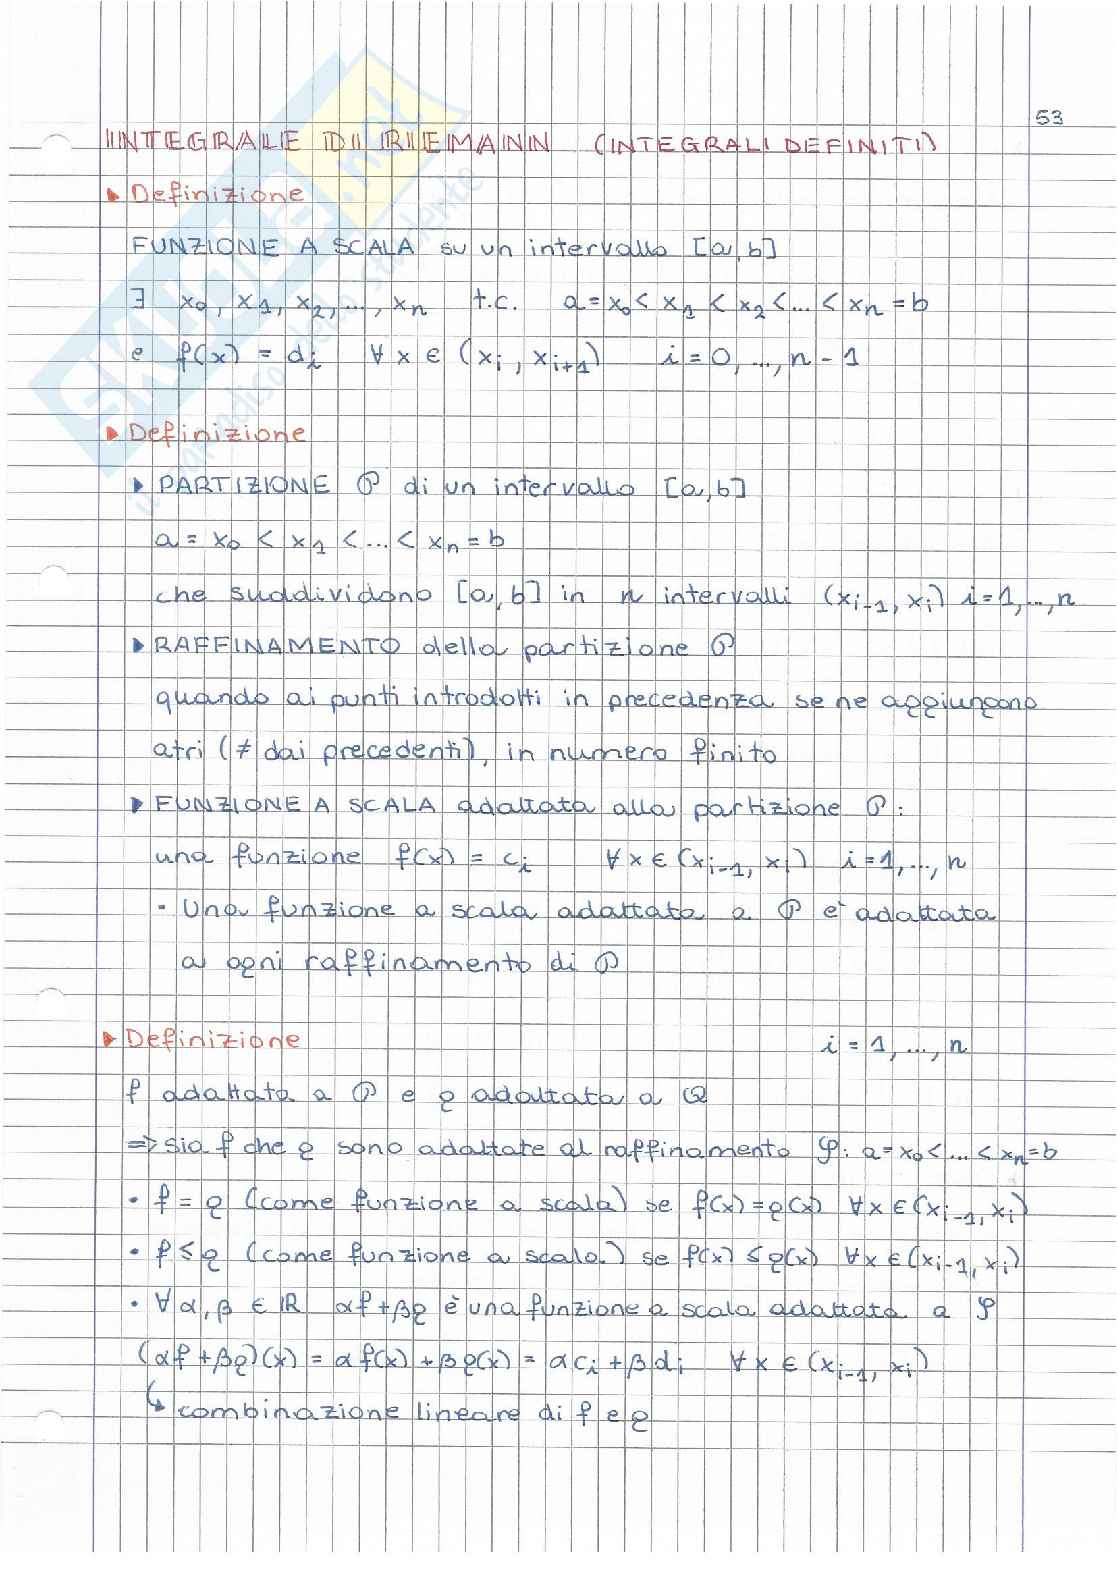 53
INTEGRALE DI RIEMANN (INTEGRALI DEFINITI)
▸ Definizione
FUNZIONE A SCALA su un intervallo [a,b]
∃ x₀, x₁, x₂, ..., xₙ t.c. a = x₀ < x₁ < x₂ < ... < xₙ = b
e f(x) = dᵢ ∀ x ∈ (xᵢ, xᵢ₊₁) i = 0, ..., n - 1
▸ Definizione
▸ PARTIZIONE P di un intervallo [a,b]
a = x₀ < x₁ < ... < xₙ = b
che suddividono [a,b] in n intervalli (xᵢ₋₁, xᵢ) i = 1, ..., n
▸ RAFFINAMENTO della partizione P
quando ai punti introdotti in precedenza se ne aggiungono
atri (≠ dai precedenti), in numero finito
▸ FUNZIONE A SCALA adattata alla partizione P:
una funzione f(x) = cᵢ ∀ x ∈ (xᵢ₋₁, xᵢ) i = 1, ..., n
• Una funzione a scala adattata a P è adattata
a ogni raffinamento di P
▸ Definizione i = 1, ..., n
f adattata a P e g adattata a Q
=> sia f che g sono adattate al raffinamento φ: a = x₀ < ... < xₙ = b
• f = g (come funzione a scala) se f(x) = g(x) ∀ x ∈ (xᵢ₋₁, xᵢ)
• f ≤ g (come funzione a scala) se f(x) ≤ g(x) ∀ x ∈ (xᵢ₋₁, xᵢ)
• ∀ α, β ∈ ℝ αf + βg è una funzione a scala adattata a φ
(αf + βg)(x) = αf(x) + βg(x) = αcᵢ + βdᵢ ∀ x ∈ (xᵢ₋₁, xᵢ)
↳ combinazione lineare di f e g
SKUOLA.net
il paradiso dello studente